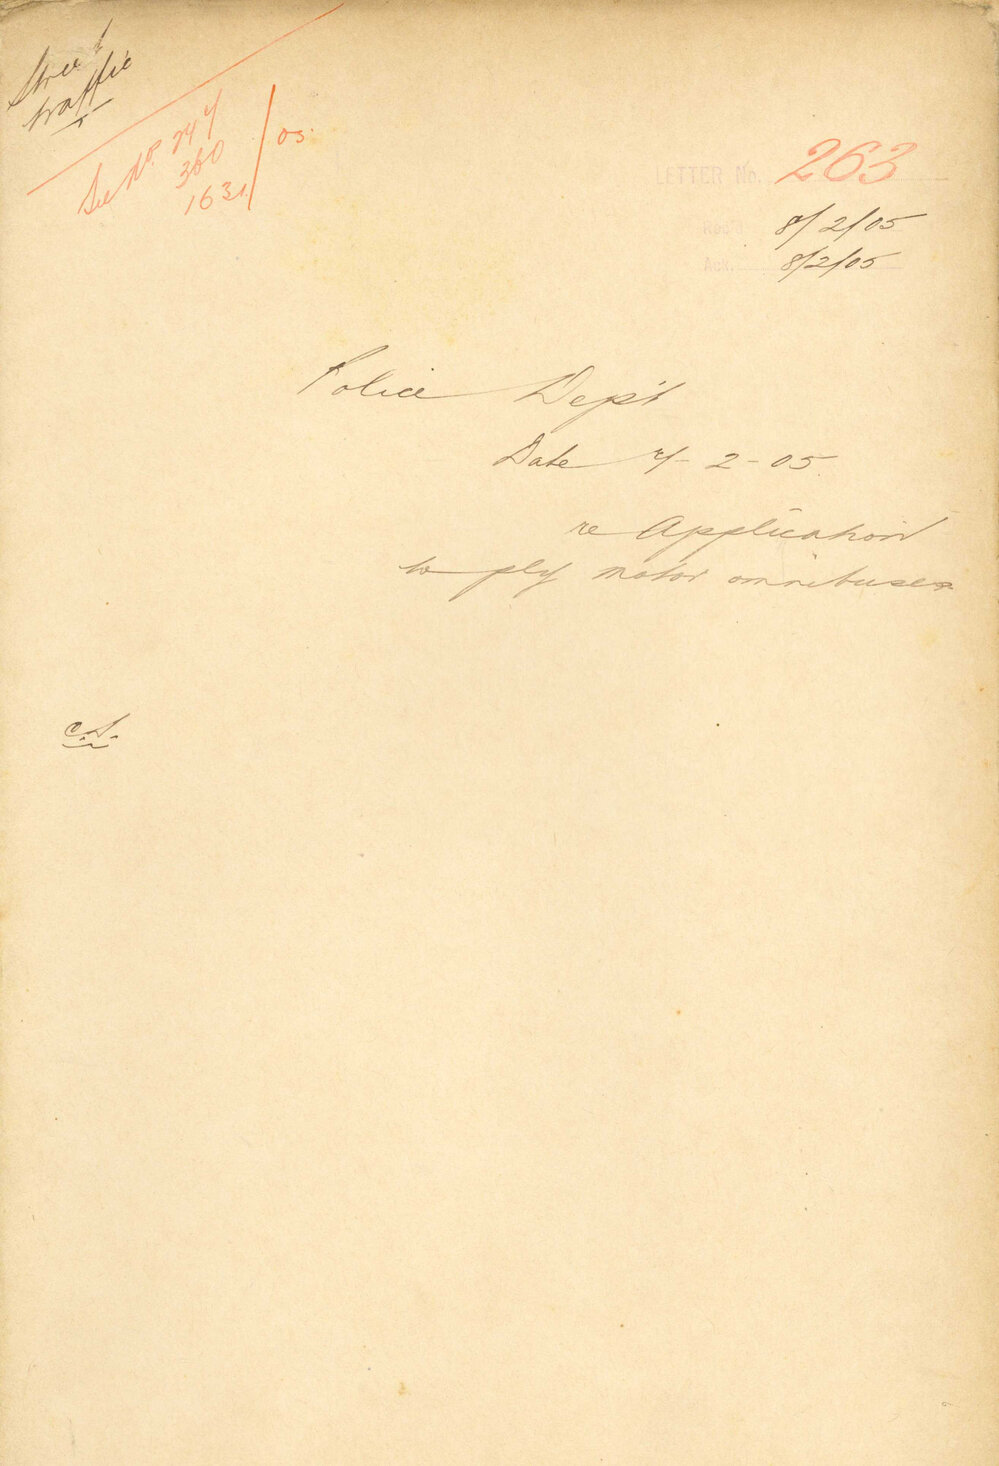 Street
traffic
See No. 247
360
1631
/05.
LETTER No. 263
Rec'd 8/2/05
Ack. 8/2/05
Police Dep't
Date 7-2-05.
re Application
to ply motor omnibuses